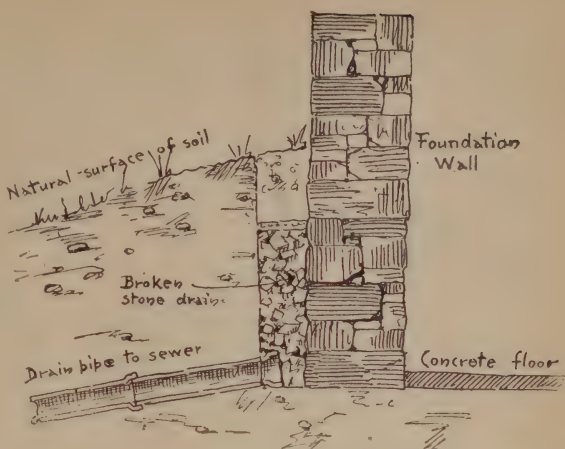 Natural surface of soil
Foundation
Wall
Broken
stone drain.
Drain pipe to sewer
Concrete floor